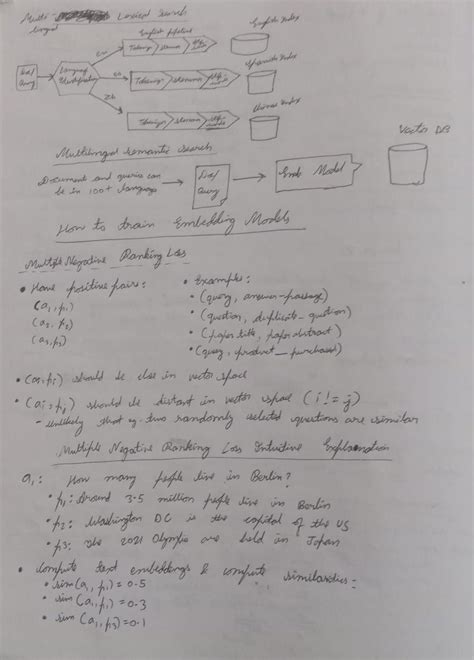 Multi- Lexical Search
lingual
English pipeline
English Index
en
Tokenizer Stemmer
Doc/
Query
Language
Identification
es
Tokenizer Stemmer
Spanish Index
Zh
Tokenizer Stemmer
Chinese Index
Vector DB
Multilingual Semantic Search
Document and queries can
be in 100+ language
Doc/
Query
Emb Model
How to train Embedding Models
Multiple Negative Ranking Loss
• Have positive pairs:
(a1, p1)
(a2, p2)
(a3, p3)
• Examples:
• (query, answer-passage)
• (question, duplicate-question)
• (paper title, paper abstract)
• (query, product_purchased)
• (ai, pi) should be close in vector space
• (ai, pj) should be distant in vector space (i != j)
- Unlikely that eg. two randomly selected questions are similar
Multiple Negative Ranking Loss Intuitive Explanation
a1: How many people live in Berlin?
• p1: Around 3.5 million people live in Berlin
• p2: Washington DC is the capital of the US
• p3: The 2021 Olympic are held in Japan
• Compute text embeddings & compute similarities:
• sim(a1, p1) = 0.5
• sim(a1, p1) = 0.3
• sim(a1, p3) = 0.1